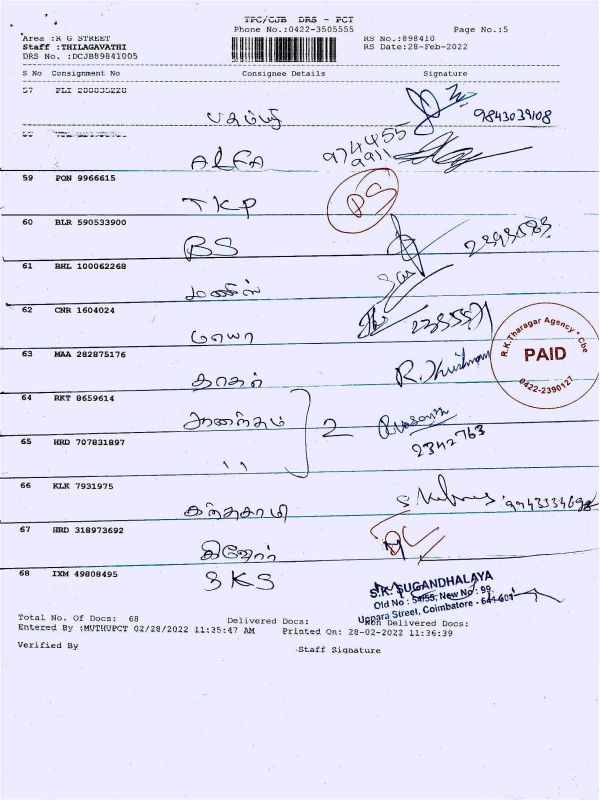 TPC/CJB DRS - PCT
Phone No.:0422-3505555 Page No.:5
Area :R G STREET RS No.:898410
Staff :THILAGAVATHI RS Date:28-Feb-2022
DRS No. :DCJB89841005
S No Consignment No Consignee Details Signature
57 PLI 200035220
9843039108
ALFA 974455
9911
59 PON 9966615
TKP PS
60 BLR 590533900
BS
61 BHL 100062268
62 CNR 1604024
மாயா
R.K.Tharagar Agency • Cbe
PAID
0422-2390127
63 MAA 282875176
R. Krishnan
64 RKT 8659614
ஆனந்தம் 2
65 HRD 707831897
2342763
"
66 KLK 7931975
கந்தசாமி
67 HRD 318973692
கிஷோர்
68 IXM 49808495
SKS
S.K. SUGANDHALAYA
Old No : 54/55, New No : 99,
Uppara Street, Coimbatore - 641 001
Total No. Of Docs: 68 Delivered Docs: Non Delivered Docs:
Entered By :MUTHUPCT 02/28/2022 11:35:47 AM Printed On: 28-02-2022 11:36:39
Verified By Staff Signature